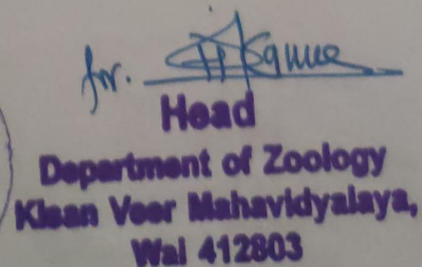 for.
Head
Department of Zoology
Kisan Veer Mahavidyalaya,
Wai 412803